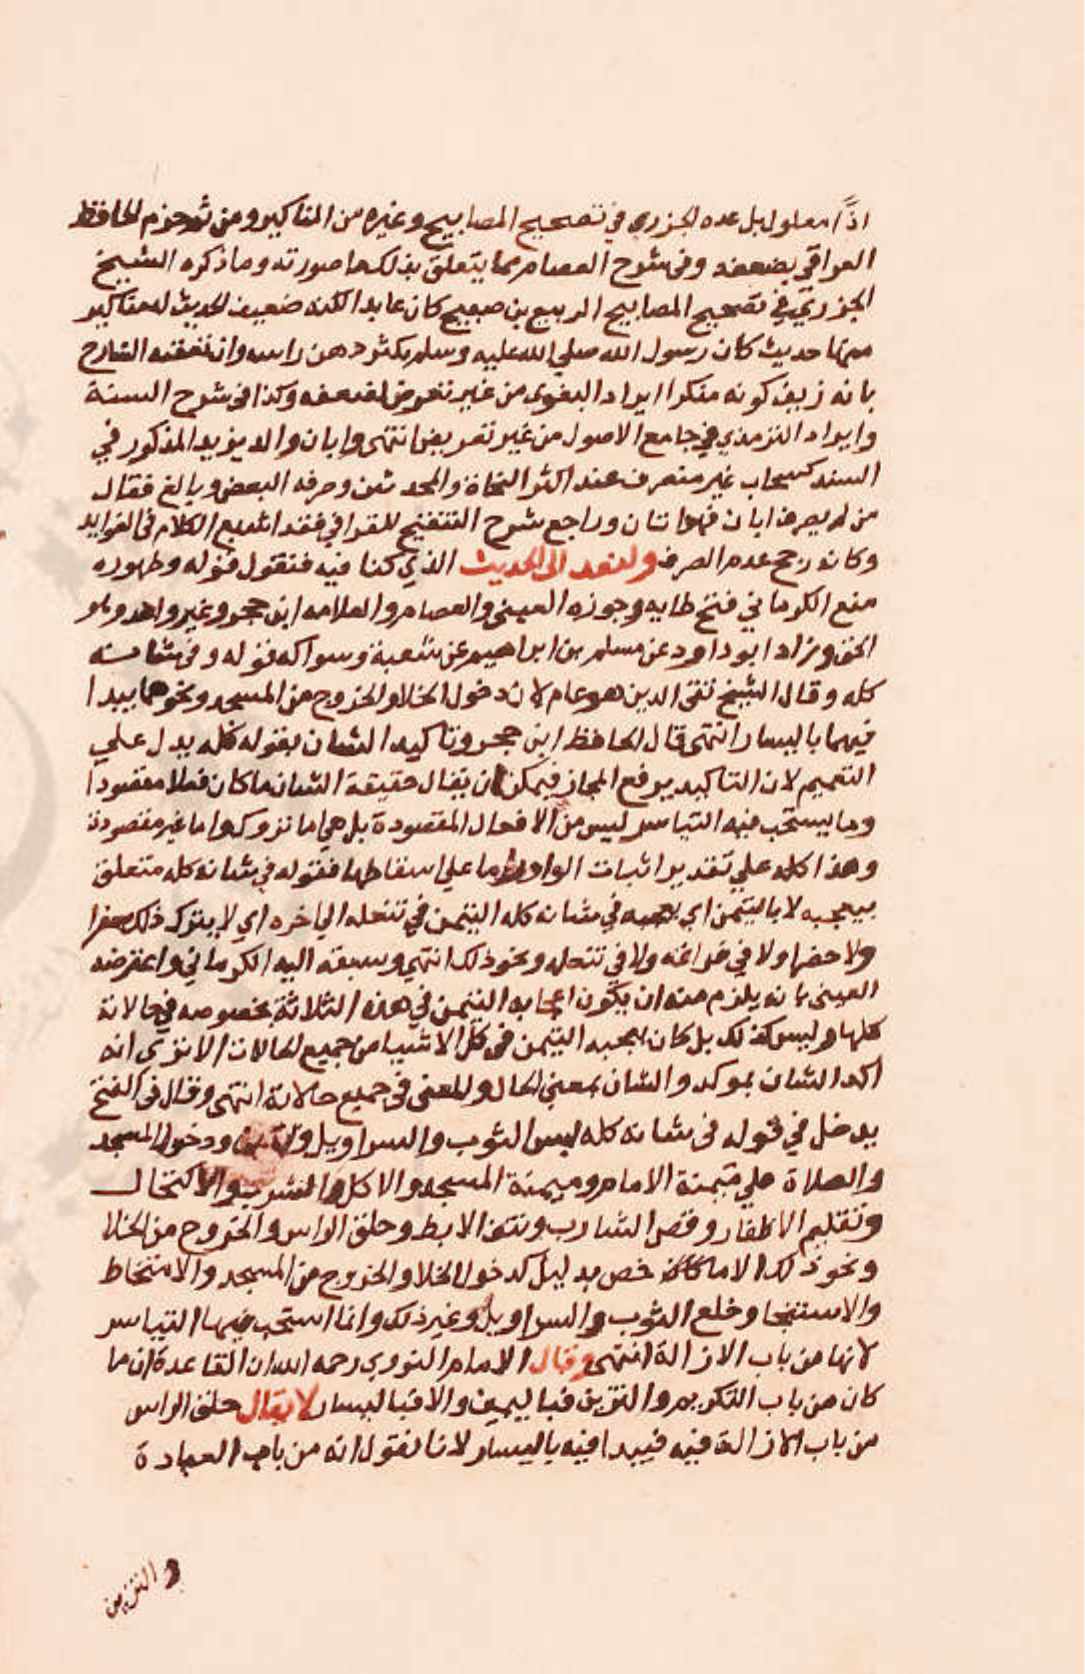 اذًا معلول بل عده الجزري في تصحيح المصابيح وغيره من المناكير ومن ثم جزم الحافظ
العراقي بضعفه وفي شرح العصام مما يتعلق بذلك ما صورته وما ذكره الشيخ
الجزري في تصحيح المصابيح الربيع بن صبيح كان عابدا لكنه ضعيف الحديث له مناكير
منها حديث كان رسول الله صلي الله عليه وسلم يكثر دهن راسه وان تعقبه الشارح
بانه زيف كونه منكرا ايراد البغوى من غير تعرض لضعفه وكذا في شرح السنة
وايراد الترمذي في جامع الاصول من غير تعريض انتهى وابان والد يزيد المذكور في
السند كسحاب غير منصرف عند اكثر النحاة والمحدثين وصرفه البعض وبالغ فقال
من لم يصرف ابان فهو اتان وراجع شرح التنقيح للقرافي فقد اشبع الكلام في الفوايد
وكانه رجح عدم الصرف ولنعد الى الحديث الذي كنا فيه فنقول قوله وطهوره
منع الكرماني فتح طايه وجوزه العيني والعصام والعلامه ابن حجر وغير واحد وهو
الحق وزاد ابو داود عن مسلم بن ابراهيم عن شعبة وسواكه قوله وفي شانه
كله وقال الشيخ تقى الدين هو عام لان دخول الخلا والخروج من المسجد ونحوهما يبدا
فيهما باليسار انتهى قال الحافظ ابن حجر وتاكيد الشان بقوله كله يدل علي
التعميم لان التاكيد يرفع المجاز فيمكن ان يقال حقيقة الشان ما كان فعلا مقصودا
وما يستحب فيه التياسر ليس من الافعال المقصودة بل هي اما تروك واما غير مقصودة
وهذا كله علي تقدير اثبات الواو واما علي اسقاطها فقوله في شانه كله متعلق
بيعجبه لا بالتيمن اي يعجبه في شانه كله التيمن في تنعله الي اخره اي لا يترك ذلك سفرا
ولا حضرا ولا في فراغه ولا في شغله ونحو ذلك انتهى وسبقه اليه الكرماني واعترضه
العينى بانه يلزم منه ان يكون اعجابه التيمن في هذه الثلاثة بخصوصه في حالاته
كلها وليس كذلك بل كان يعجبه التيمن في كل الاشيا من جميع الحالات الا ترى انه
اكد الشان بموكد والشان بمعني الحال والمعنى في جميع حالاته انتهى وقال في الفتح
يدخل في قوله في شانه كله لبس الثوب والسراويل والخف ودخول المسجد
والصلاة علي ميمنة الامام وميمنة المسجد والاكل والشرب والاكتحال
وتقليم الاظفار وقص الشارب ونتف الابط وحلق الراس والخروج من الخلا
ونحو ذلك الا ما خص بدليل كدخول الخلا والخروج من المسجد والامتخاط
والاستنجا وخلع الثوب والسراويل وغير ذلك وانما استحب فيها التياسر
لانها من باب الازالة انتهى وقال الامام النووي رحمه الله ان القاعدة ان ما
كان من باب التكريم والتزين فباليمين والا فباليسار لا يقال حلق الراس
من باب الازالة فيه فيبدا فيه باليسار لانا نقول انه من باب العبادة
والتزين